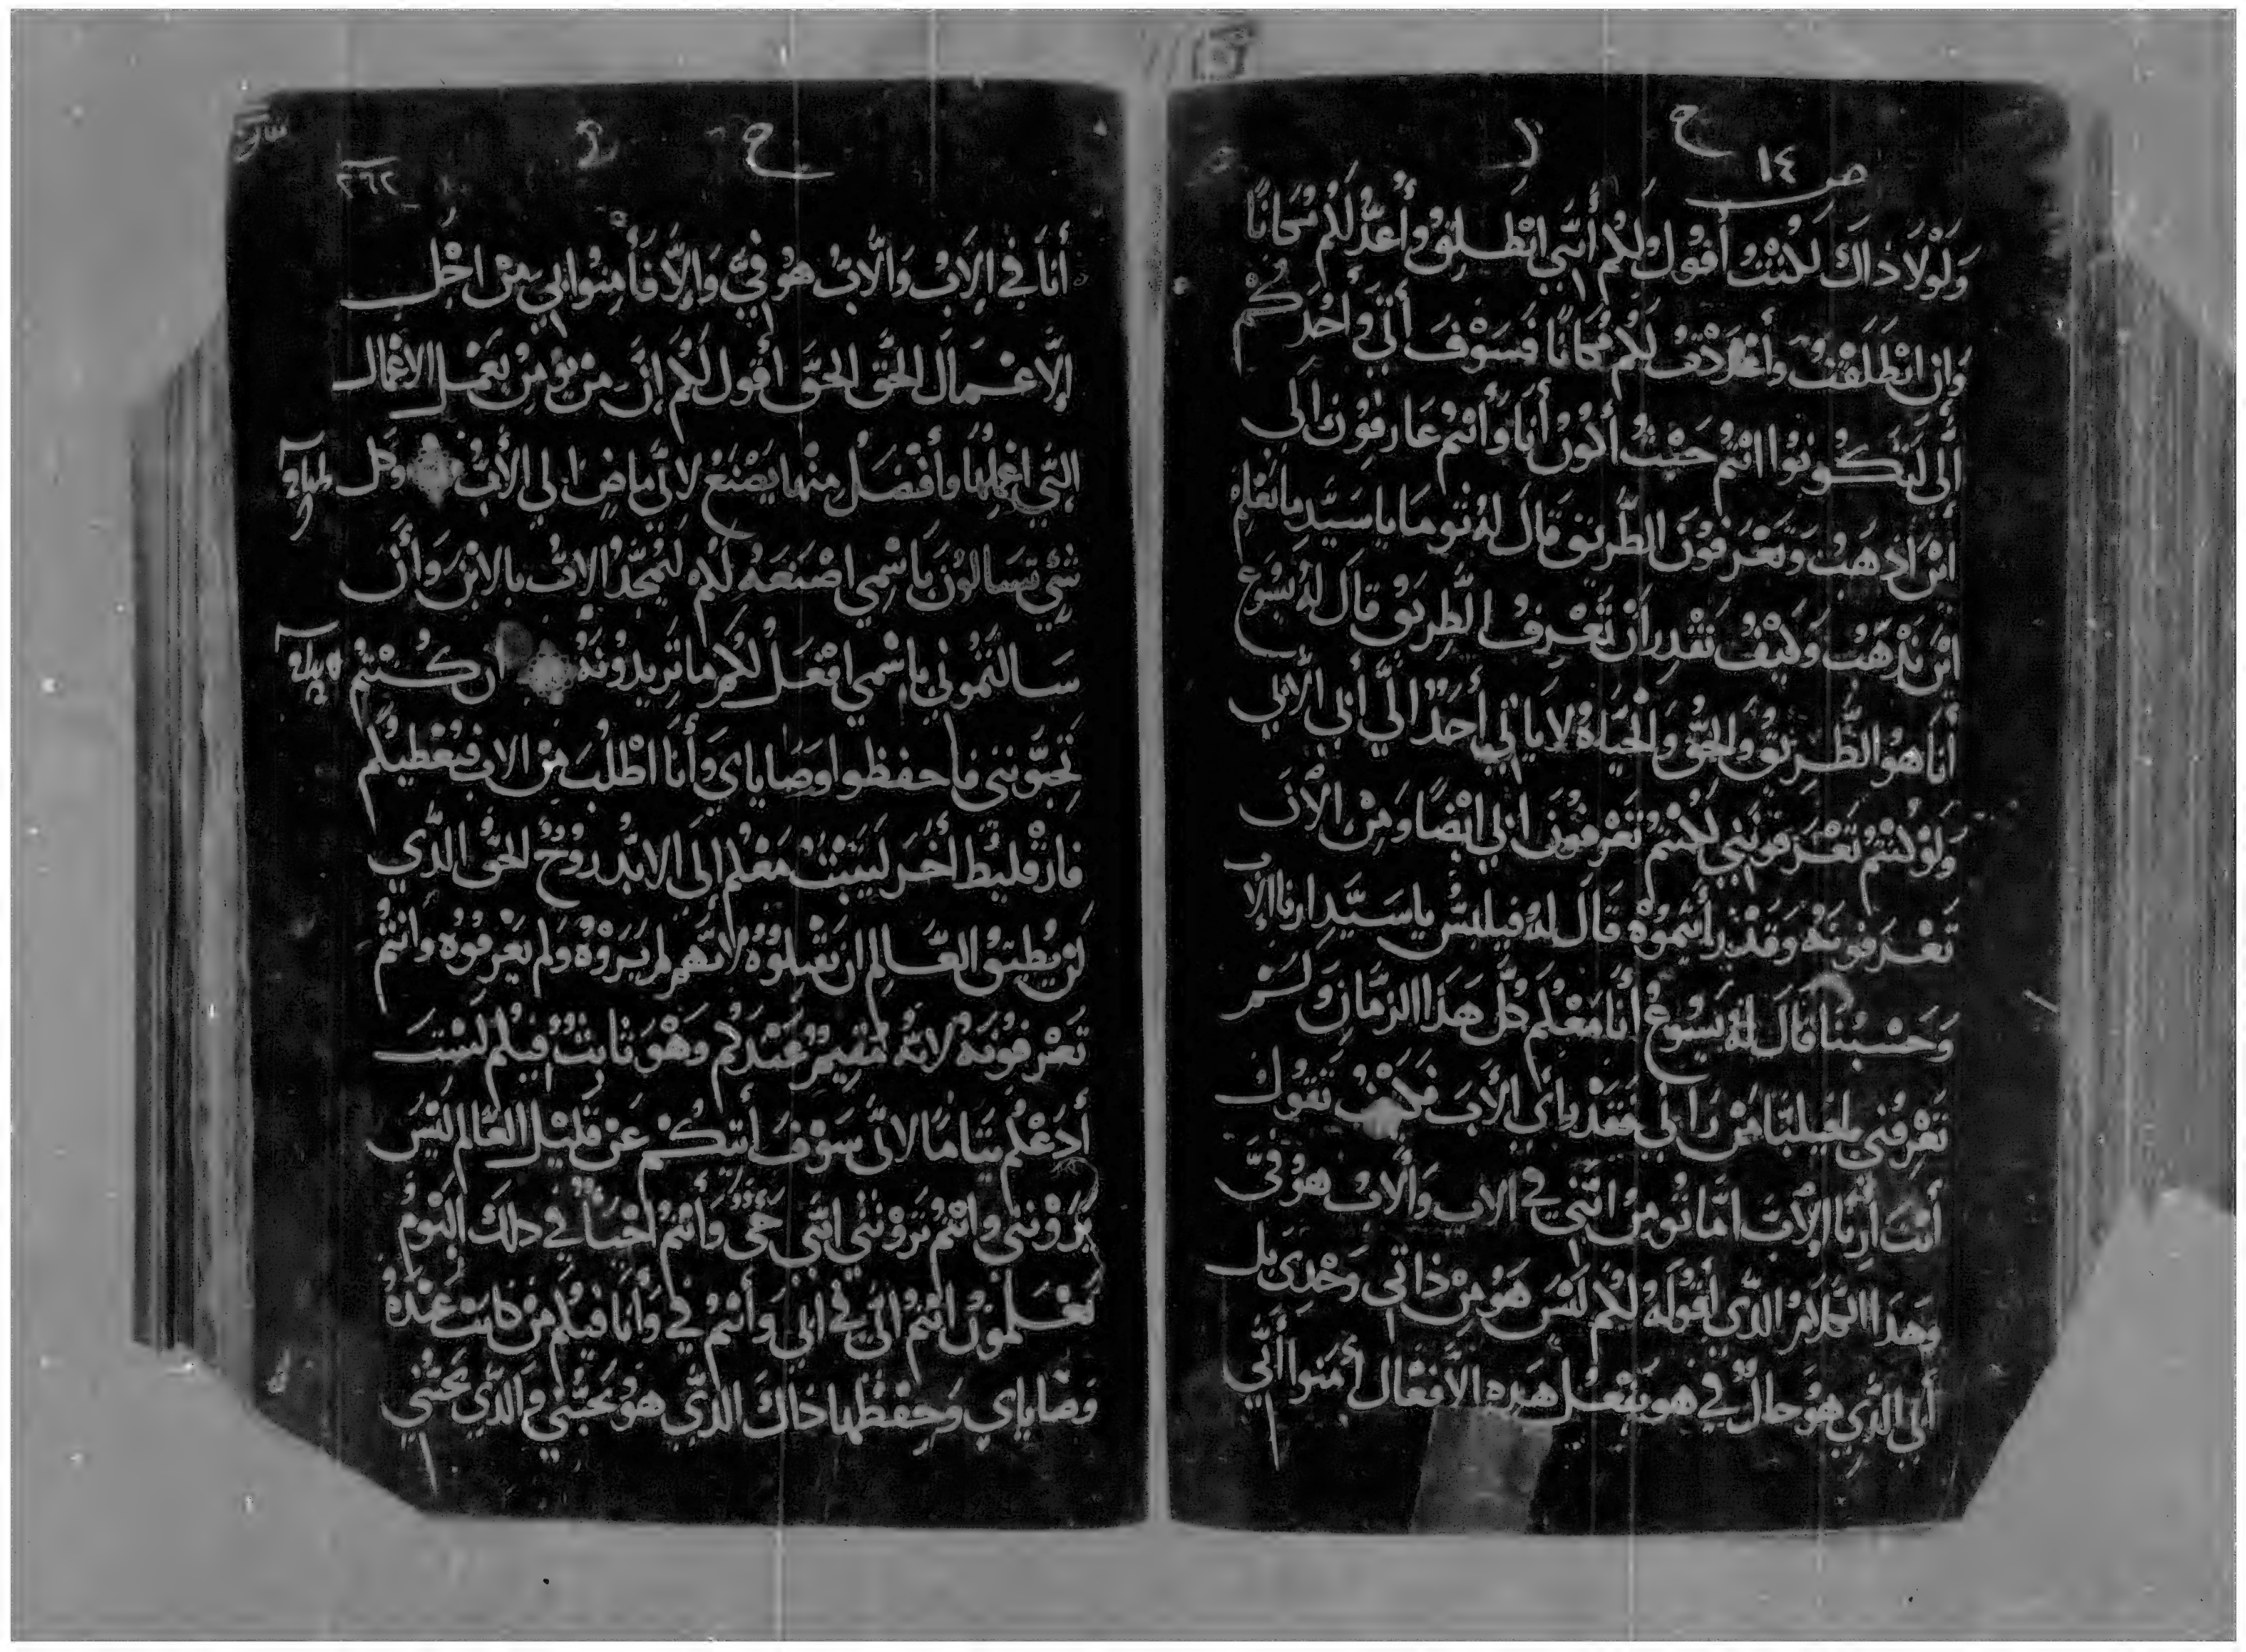 ص ١٤
وَلَوْلَا ذَاكَ لَكُنْتُ أَقُولُ لَكُمْ أَنَّنِي انْطَلِقُ وَأُعَدُّ لَكُمْ مَكَانًا
وَاِن انْطَلَقْتُ وَأَعْدَدْتُ لَكُمْ مَكَانًا فَسَوْفَ أَتِي وَأَخُذَكُمْ
أِلَى لِتَكُونُوا انْتُمْ حَيْثُ أَكُونُ أَنَا وَأَنْتُمْ عَارِفُونَ الَى
ايْنَ اذهَبُ وَتَعْرَفُونَ الطَّرِيق قَالَ لَهُ توما يا سَيَّدِ مَا نَعْلم
ايْنَ تَذهَبْ وَكَيْفُ نَقْدِر أنْ نَعْرِفُ الطَّرِيقُ قَالَ لَهُ يَسُوع
أَنَا هُو الطَّرِيقُ وَالحَقُّ وَالحَيَاةُ لا يَاتِي أَحَدٌ الَى أَبِي الَّا بِي
وَلَوْ كُنْتُمْ تَعْرَفُونَنِي لَكُنْتُمْ تَعْرِفُونَ ابي ايْضًا وَمِنْ الْآنَ
تَعْرَفُونَهُ وَقَدْ رأَيْتُمُوهُ قَالَ لَهُ فيلبس يا سَيَّدِ ارنا الاب
وَحَسْبُنَا قَالَ لَهُ يَسُوعُ أَنَا مَعْكُم كُلَّ هَذَا الزَمَّانِ وَلَمْ
تَعْرِفُني يا فيلبّا مَنْ رَانِي فَقَدْ رَأَى الأَبَ فَكَيْفَ تَقُول
أَنتَ أَرِنَا الاَبَ امَا تُومِنُ انَّنِي فِي الاب وَالأَبُ هُوَ فِيَّ
وَهَذَا الكَلَامُ الذَّي أَقُولَهُ لَكُمْ لَيْسَ هُوَ مِنْ ذَاتي وَحْدَي بل
أَبي الذَّي هُوَ حالٌّ فِي هو يَفْعَلُ هَذِه الاَفْعَال أَمَنوا أَنَّي
٢٦٢
أَنَا فِي الاَبْ وَالْاَبُ هُوَ فِيَّ وَإِلَّا فَأَمِنُوا بِي مِنْ اجْل
الْاعْمَالَ الحَقّ الحَقَّ أَقُول لَكُمْ إنَّ مَن يؤمِنُ يَعْمَل الاعْمَال
التِّي اعْمِلُهَا وَأَفْضَلُ مِنْهَا يَصْنَعُ لِاَنِّي مَاضٍ إلى الأَبْ وَكل
شَيْ تَسَالُونَ بَاسْمِي اصْنَعَهُ لَكُم لَيُمَجَّدُ الابُ بالابْنِ وَأَن
سَالتمُوني بإسْمي افْعَلُ لَكُم مَا تَرِيدُونَهُ ان كُنْتُمْ
تَحِبُّونني فاحفظوا وَصَايَاي وَأَنَا اطْلُبَ مِنْ الاب فيُعْطِيكُم
فَارْقليُط أخَر لَيَثْبُتْ مَعْكُم إلى الابَّد روُحُ الحَقُّ الذَّي
لَنْ يُطِيقُ العَّالمِ ان يَقْبِلُوُهُ لانَّهُم لَم يَرَوْهُ وَلَم يَعْرفوُه وانتُمْ
تَعْرفُونَهُ لانَّهُ مُقِيمُ عَنْدَكُم وَهْوَ ثَابِتُ فِيكُم لَسْتَ
أَدَعْكُم يتَامَا لانِّي سَوْفُ أتيكُمْ عَنْ قَلِيْل العَّالم لَيْسَ
يَرَوْنني وَانْتُمْ تَرَوْنَنْي انَّني حَيٌّ وَأَنتُمْ أحْيَاً في ذلك اليَومُ
تَعْلَمُونُ انْتُمْ انّي في ابي وَأَنتُم فيَّ وَأَنَا فيكُم مَنْ كانت عَنْدَهُ
وَصَايَاي وَحِفْظَهَا ذَاكَ الذَّي هُوَ يُحَبُّنِي وَالذَّي يحَبُّني